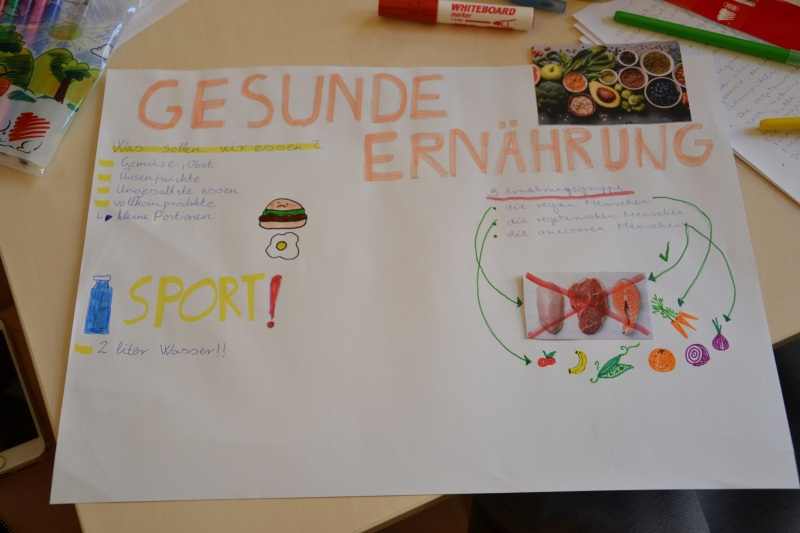 WHITEBOARD
marker
GESUNDE
ERNÄHRUNG
Was sollen wir essen?
Gemüse, Obst
Ungesalzte essen
vollkornprodukte
↳ kleine Portionen
SPORT!
2 liter Wasser!!
3 ernährungsgruppe
die vegan Menschen
die vegetarischen Menschen
die omnivoren Menschen